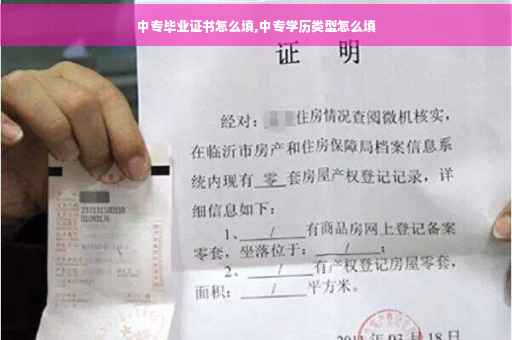 中专毕业证书怎么填,中专学历类型怎么填
证 明
经对：住房情况查阅微机核实，
在临沂市房产和住房保障局档案信息系
统内现有 零 套房屋产权登记记录，详
细信息如下：
1、 / 有商品房网上登记备案
零套，坐落位于： / ；
2、 / 有产权登记房屋零套，
面积： / 平方米。
03月18日